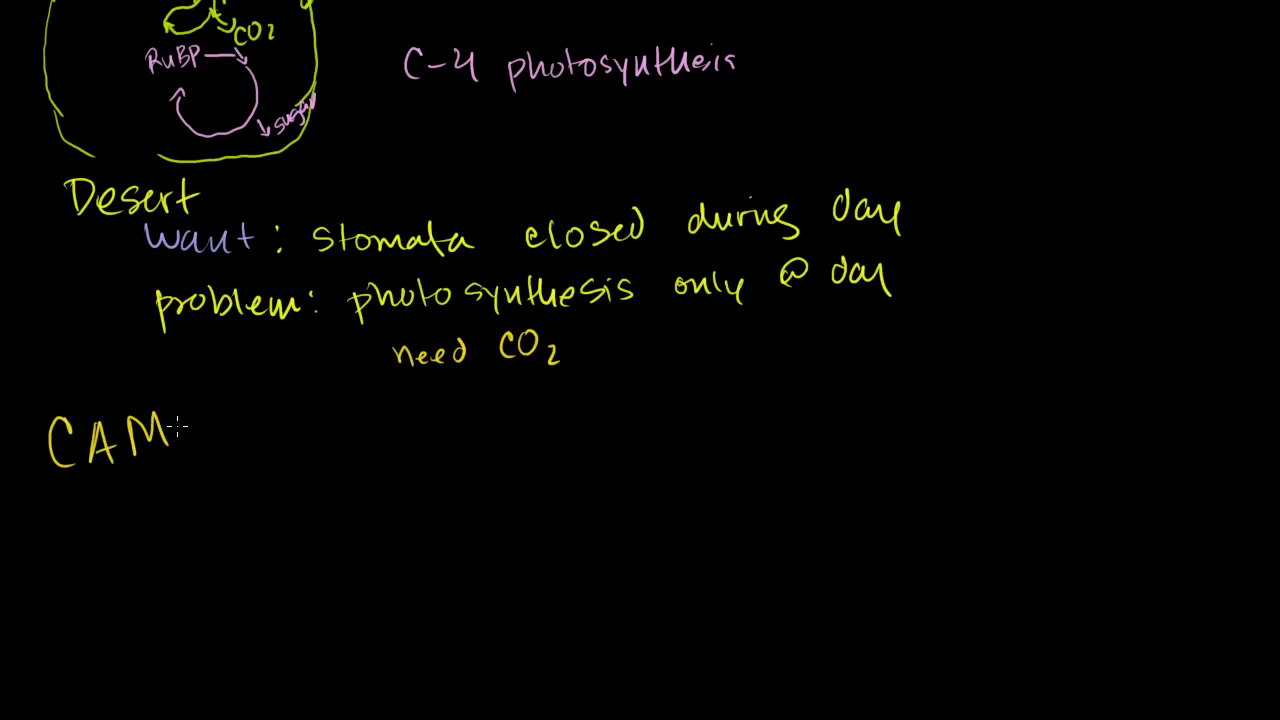 CO2
RuBP
C-4 photosynthesis
sugar
Desert
want: stomata closed during day
problem: photosynthesis only @ day
need CO2
CAM